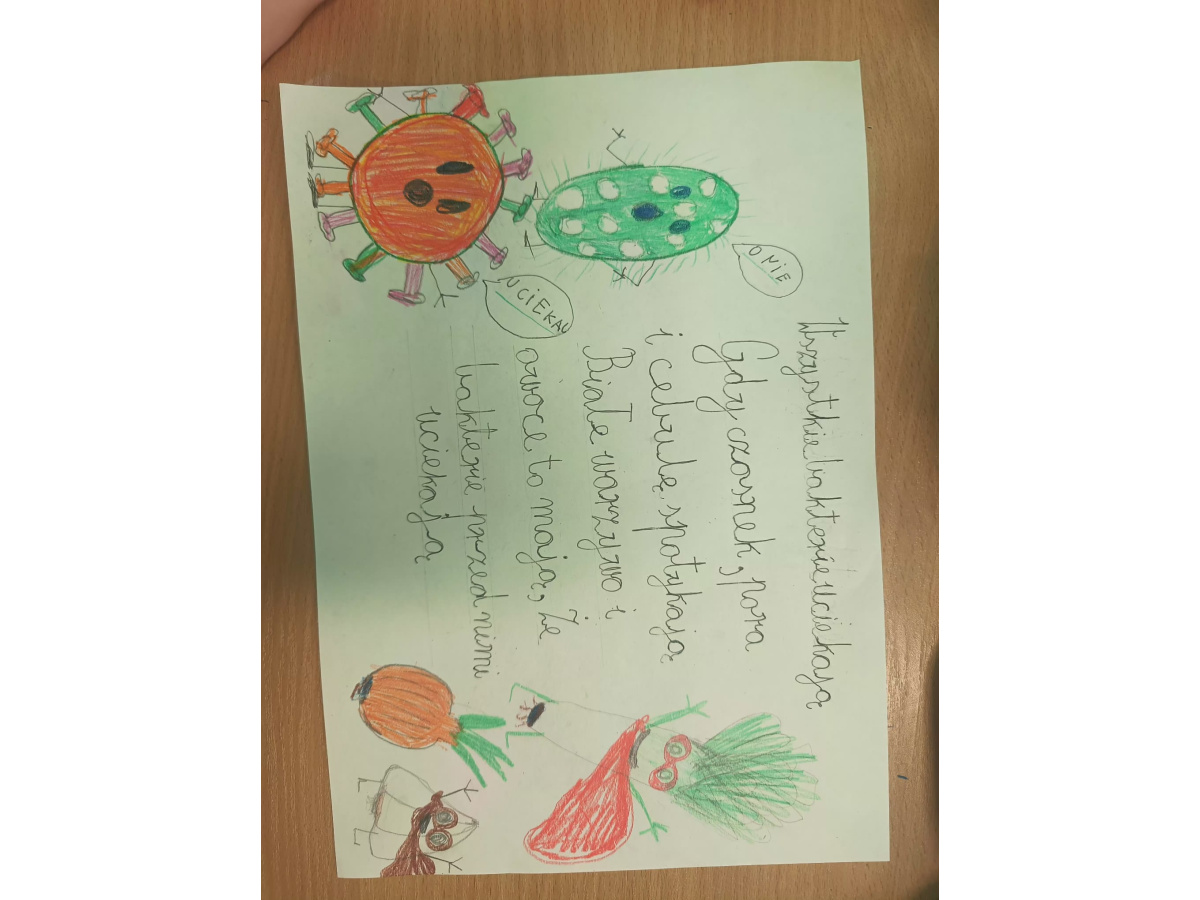 Wszystkie bakterie uciekają
Gdy czosnek, pora
i cebulę, spotykają
Białe warzywo i
owoce to mają, że
bakterie przed nimi
uciekają
O NIE
UCIEKAĆ